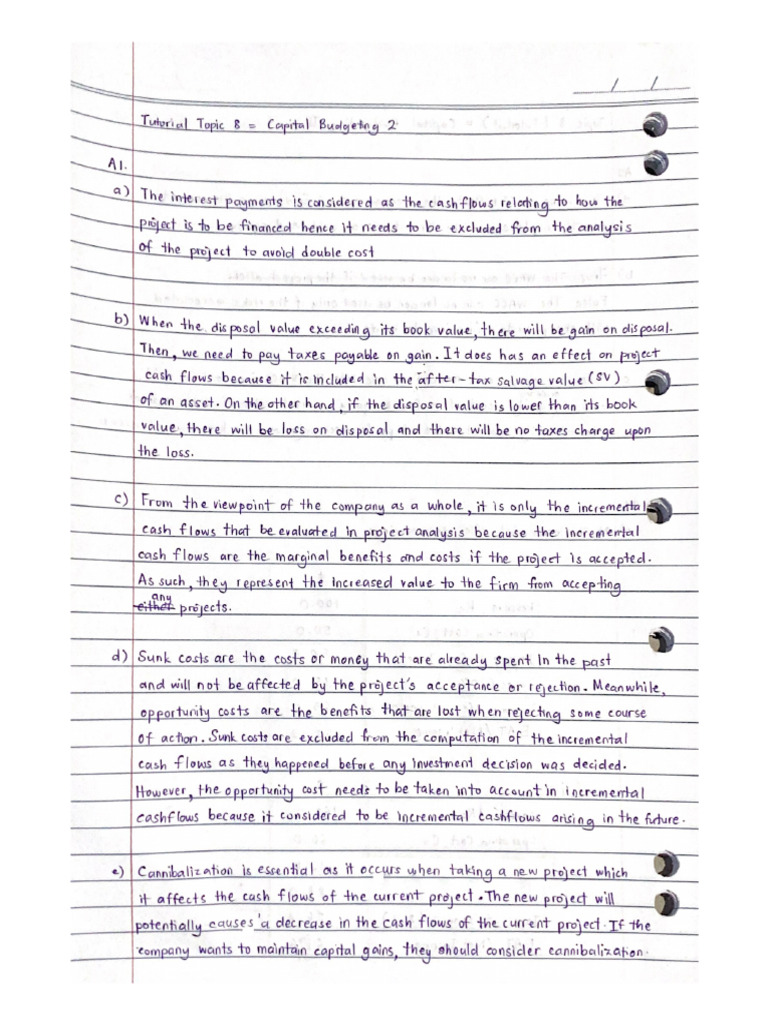 / /
Tutorial Topic 8 = Capital Budgeting 2
A1.
a) The interest payments is considered as the cashflows relating to how the
project is to be financed hence it needs to be excluded from the analysis
of the project to avoid double cost
b) When the disposal value exceeding its book value, there will be gain on disposal.
Then, we need to pay taxes payable on gain. It does has an effect on project
cash flows because it is included in the after-tax salvage value (SV)
of an asset. On the other hand, if the disposal value is lower than its book
value, there will be loss on disposal and there will be no taxes charge upon
the loss.
c) From the viewpoint of the company as a whole, it is only the incremental
cash flows that be evaluated in project analysis because the incremental
cash flows are the marginal benefits and costs if the project is accepted.
As such, they represent the increased value to the firm from accepting
any
either projects.
d) Sunk costs are the costs or money that are already spent in the past
and will not be affected by the project's acceptance or rejection. Meanwhile,
opportunity costs are the benefits that are lost when rejecting some course
of action. Sunk costs are excluded from the computation of the incremental
cash flows as they happened before any investment decision was decided.
However, the opportunity cost needs to be taken into account in incremental
cashflows because it considered to be incremental cashflows arising in the future.
e) Cannibalization is essential as it occurs when taking a new project which
it affects the cash flows of the current project. The new project will
potentially causes a decrease in the cash flows of the current project. If the
company wants to maintain capital gains, they should consider cannibalization.